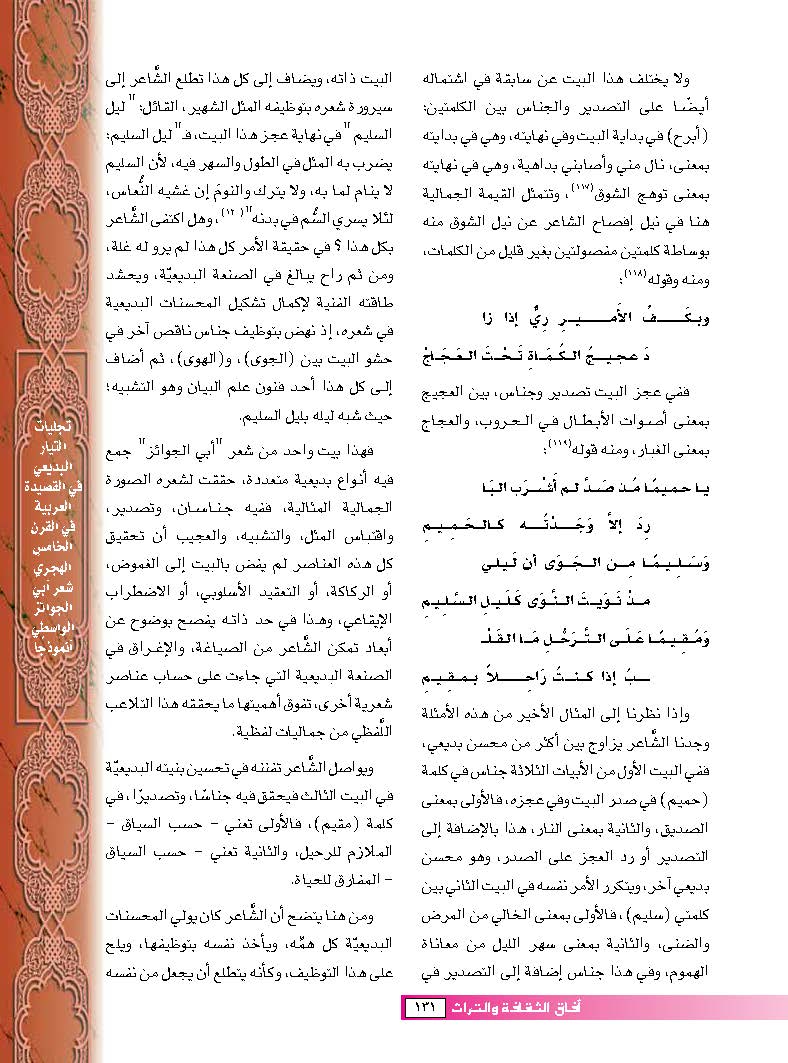 ولا يختلف هذا البيت عن سابقة في اشتماله
أيضًا على التصدير والجناس بين الكلمتين:
(أبرح) في بداية البيت وفي نهايته، وهي في بدايته
بمعنى، نال مني وأصابني بداهية، وهي في نهايته
بمعنى توهج الشوق(١١٧)، وتتمثل القيمة الجمالية
هنا في نيل إفصاح الشاعر عن نيل الشوق منه
بوساطة كلمتين مفصولتين بغير قليل من الكلمات،
ومنه وقوله(١١٨):
وبكَــــفُ الأَمـــــيــرِ رِيٌّ إذا زا
دَ عجيــجُ الـكُـمَـاةِ تَـحْـتَ الـعَـجَـاجْ
ففي عجز البيت تصدير وجناس، بين العجيج
بمعنى أصوات الأبطال في الحروب، والعجاج
بمعنى الغبار، ومنه قوله(١١٩):
يـا حـميـمًـا مُـذ صَـدَّ لـم أَشْـرَب الـبَـا
رِدَ إلاَّ وَجَـــدْتُـــه كـالـحَـمِـيـمِ
وَسَـلِـيـمًـا مِـن الـجَـوَى أن لَـيلـي
مـذْ نَـوَيـتَ الـنَّـوَى كَـلَـيـلِ السَّـلِـيـمِ
وَمُـقِـيـمًـا عَـلَـى الـتَّـرَحُّـلِ مَـا القَـلْـ
ــبُ إذا كـنـتُ رَاحِــلاً بـمـقِـيـمِ
وإذا نظرنا إلى المثال الأخير من هذه الأمثلة
وجدنا الشَّاعر يزاوج بين أكثر من محسن بديعي،
ففي البيت الأول من الأبيات الثلاثة جناس في كلمة
(حميم) في صدر البيت وفي عجزه، فالأولى بمعنى
الصديق، والثانية بمعنى النار، هذا بالإضافة إلى
التصدير أو رد العجز على الصدر، وهو محسن
بديعي آخر، ويتكرر الأمر نفسه في البيت الثاني بين
كلمتي (سليم)، فالأولى بمعنى الخالي من المرض
والضنى، والثانية بمعنى سهر الليل من معاناة
الهموم، وفي هذا جناس إضافة إلى التصدير في
البيت ذاته، ويضاف إلى كل هذا تطلع الشَّاعر إلى
سيرورة شعره بتوظيفه المثل الشهير، القائل: "ليل
السليم" في نهاية عجز هذا البيت، فـ"ليل السليم:
يضرب به المثل في الطول والسهر فيه، لأن السليم
لا ينام لما به، ولا يترك والنومَ إن غشيه النُّعاس،
لئلا يسري السُّم في بدنه"(١٢٠)، وهل اكتفى الشَّاعر
بكل هذا؟ في حقيقة الأمر كل هذا لم يرو له غلة،
ومن ثم راح يبالغ في الصنعة البديعيّة، ويحشد
طاقته الفنية لإكمال تشكيل المحسنات البديعية
في شعره، إذ نهض بتوظيف جناس ناقص آخر في
حشو البيت بين (الجوى)، و(الهوى)، ثم أضاف
إلى كل هذا أحد فنون علم البيان وهو التشبيه؛
حيث شبه ليله بليل السليم.
فهذا بيت واحد من شعر "أبي الجوائز" جمع
فيه أنواع بديعية متعددة، حققت لشعره الصورة
الجمالية المثالية، ففيه جناسان، وتصدير،
واقتباس المثل، والتشبيه، والعجيب أن تحقيق
كل هذه العناصر لم يفض بالبيت إلى الغموض،
أو الركاكة، أو التعقيد الأسلوبي، أو الاضطراب
الإيقاعي، وهذا في حد ذاته يفصح بوضوح عن
أبعاد تمكن الشَّاعر من الصياغة، والإغراق في
الصنعة البديعية التي جاءت على حساب عناصر
شعرية أخرى، تفوق أهميتها ما يحققه هذا التلاعب
اللَّفظي من جماليات لفظية.
ويواصل الشَّاعر تفننه في تحسين بنيته البديعيّة
في البيت الثالث فيحقق فيه جناسًا، وتصديرًا، في
كلمة (مقيم)، فالأولى تعني – حسب السياق –
الملازم للرحيل، والثانية تعني – حسب السياق
– المفارق للحياة.
ومن هنا يتضح أن الشَّاعر كان يولي المحسنات
البديعيّة كل همّه، ويأخذ نفسه بتوظيفها، ويلح
على هذا التوظيف، وكأنه يتطلع أن يجعل من نفسه
تجليات
التيار
البديعي
في القصيدة
العربية
في القرن
الخامس
الهجري
شعر أبي
الجوائز
الواسطي
أنموذجا
آفاق الثقافة والتراث ١٣١